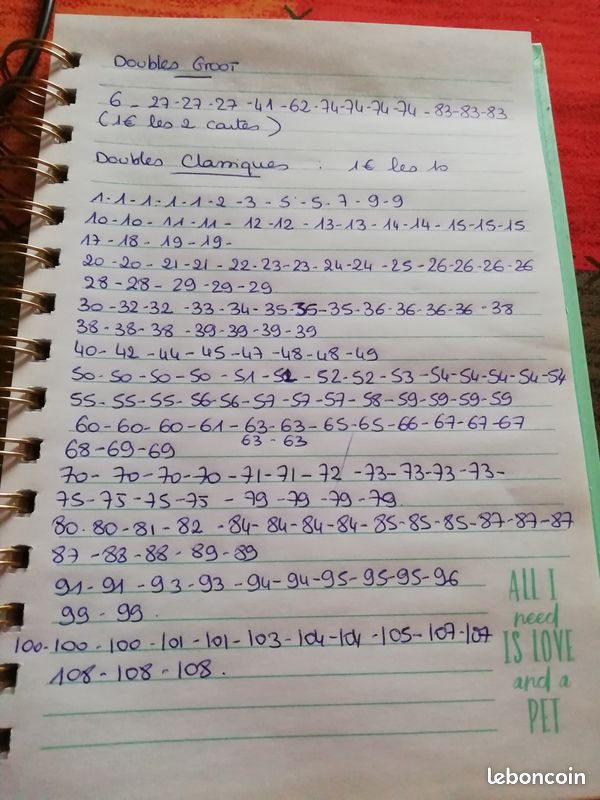 Doubles Groot
6 - 27-27-27-41-62-74-74-74-74-83-83-83
(1€ les 2 cartes)
Doubles Classiques : 1€ les 10
1-1-1-1-1-2-3-5-5-7-9-9
10-10-11-11-12-12-13-13-14-14-15-15-15
17-18-19-19-
20-20-21-21-22-23-23-24-24-25-26-26-26-26
28-28-29-29-29
30-32-32-33-34-35-35-35-36-36-36-36-38
38-38-38-39-39-39-39
40-42-44-45-47-48-48-49
50-50-50-50-51-52-52-52-53-54-54-54-54-54
55-55-55-56-56-57-57-57-58-59-59-59-59
60-60-60-61-63-63-65-65-66-67-67-67
63-63
68-69-69
70-70-70-70-71-71-72-73-73-73-73-
75-75-75-75-79-79-79-79
80-80-81-82-84-84-84-84-85-85-85-87-87-87
87-88-88-89-89
91-91-93-93-94-94-95-95-95-96
99-99.
100-100-100-101-101-103-104-104-105-107-107
108-108-108.
ALL I
need
IS LOVE
and a
PET
leboncoin